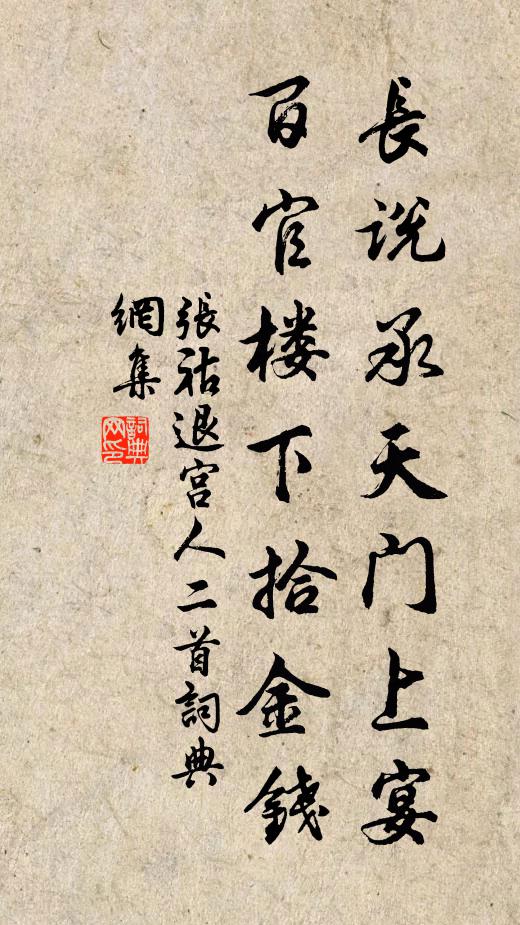 長説承天門上宴
百官楼下拾金錢
張祜退宫人二首詞典
網集
詞典网印